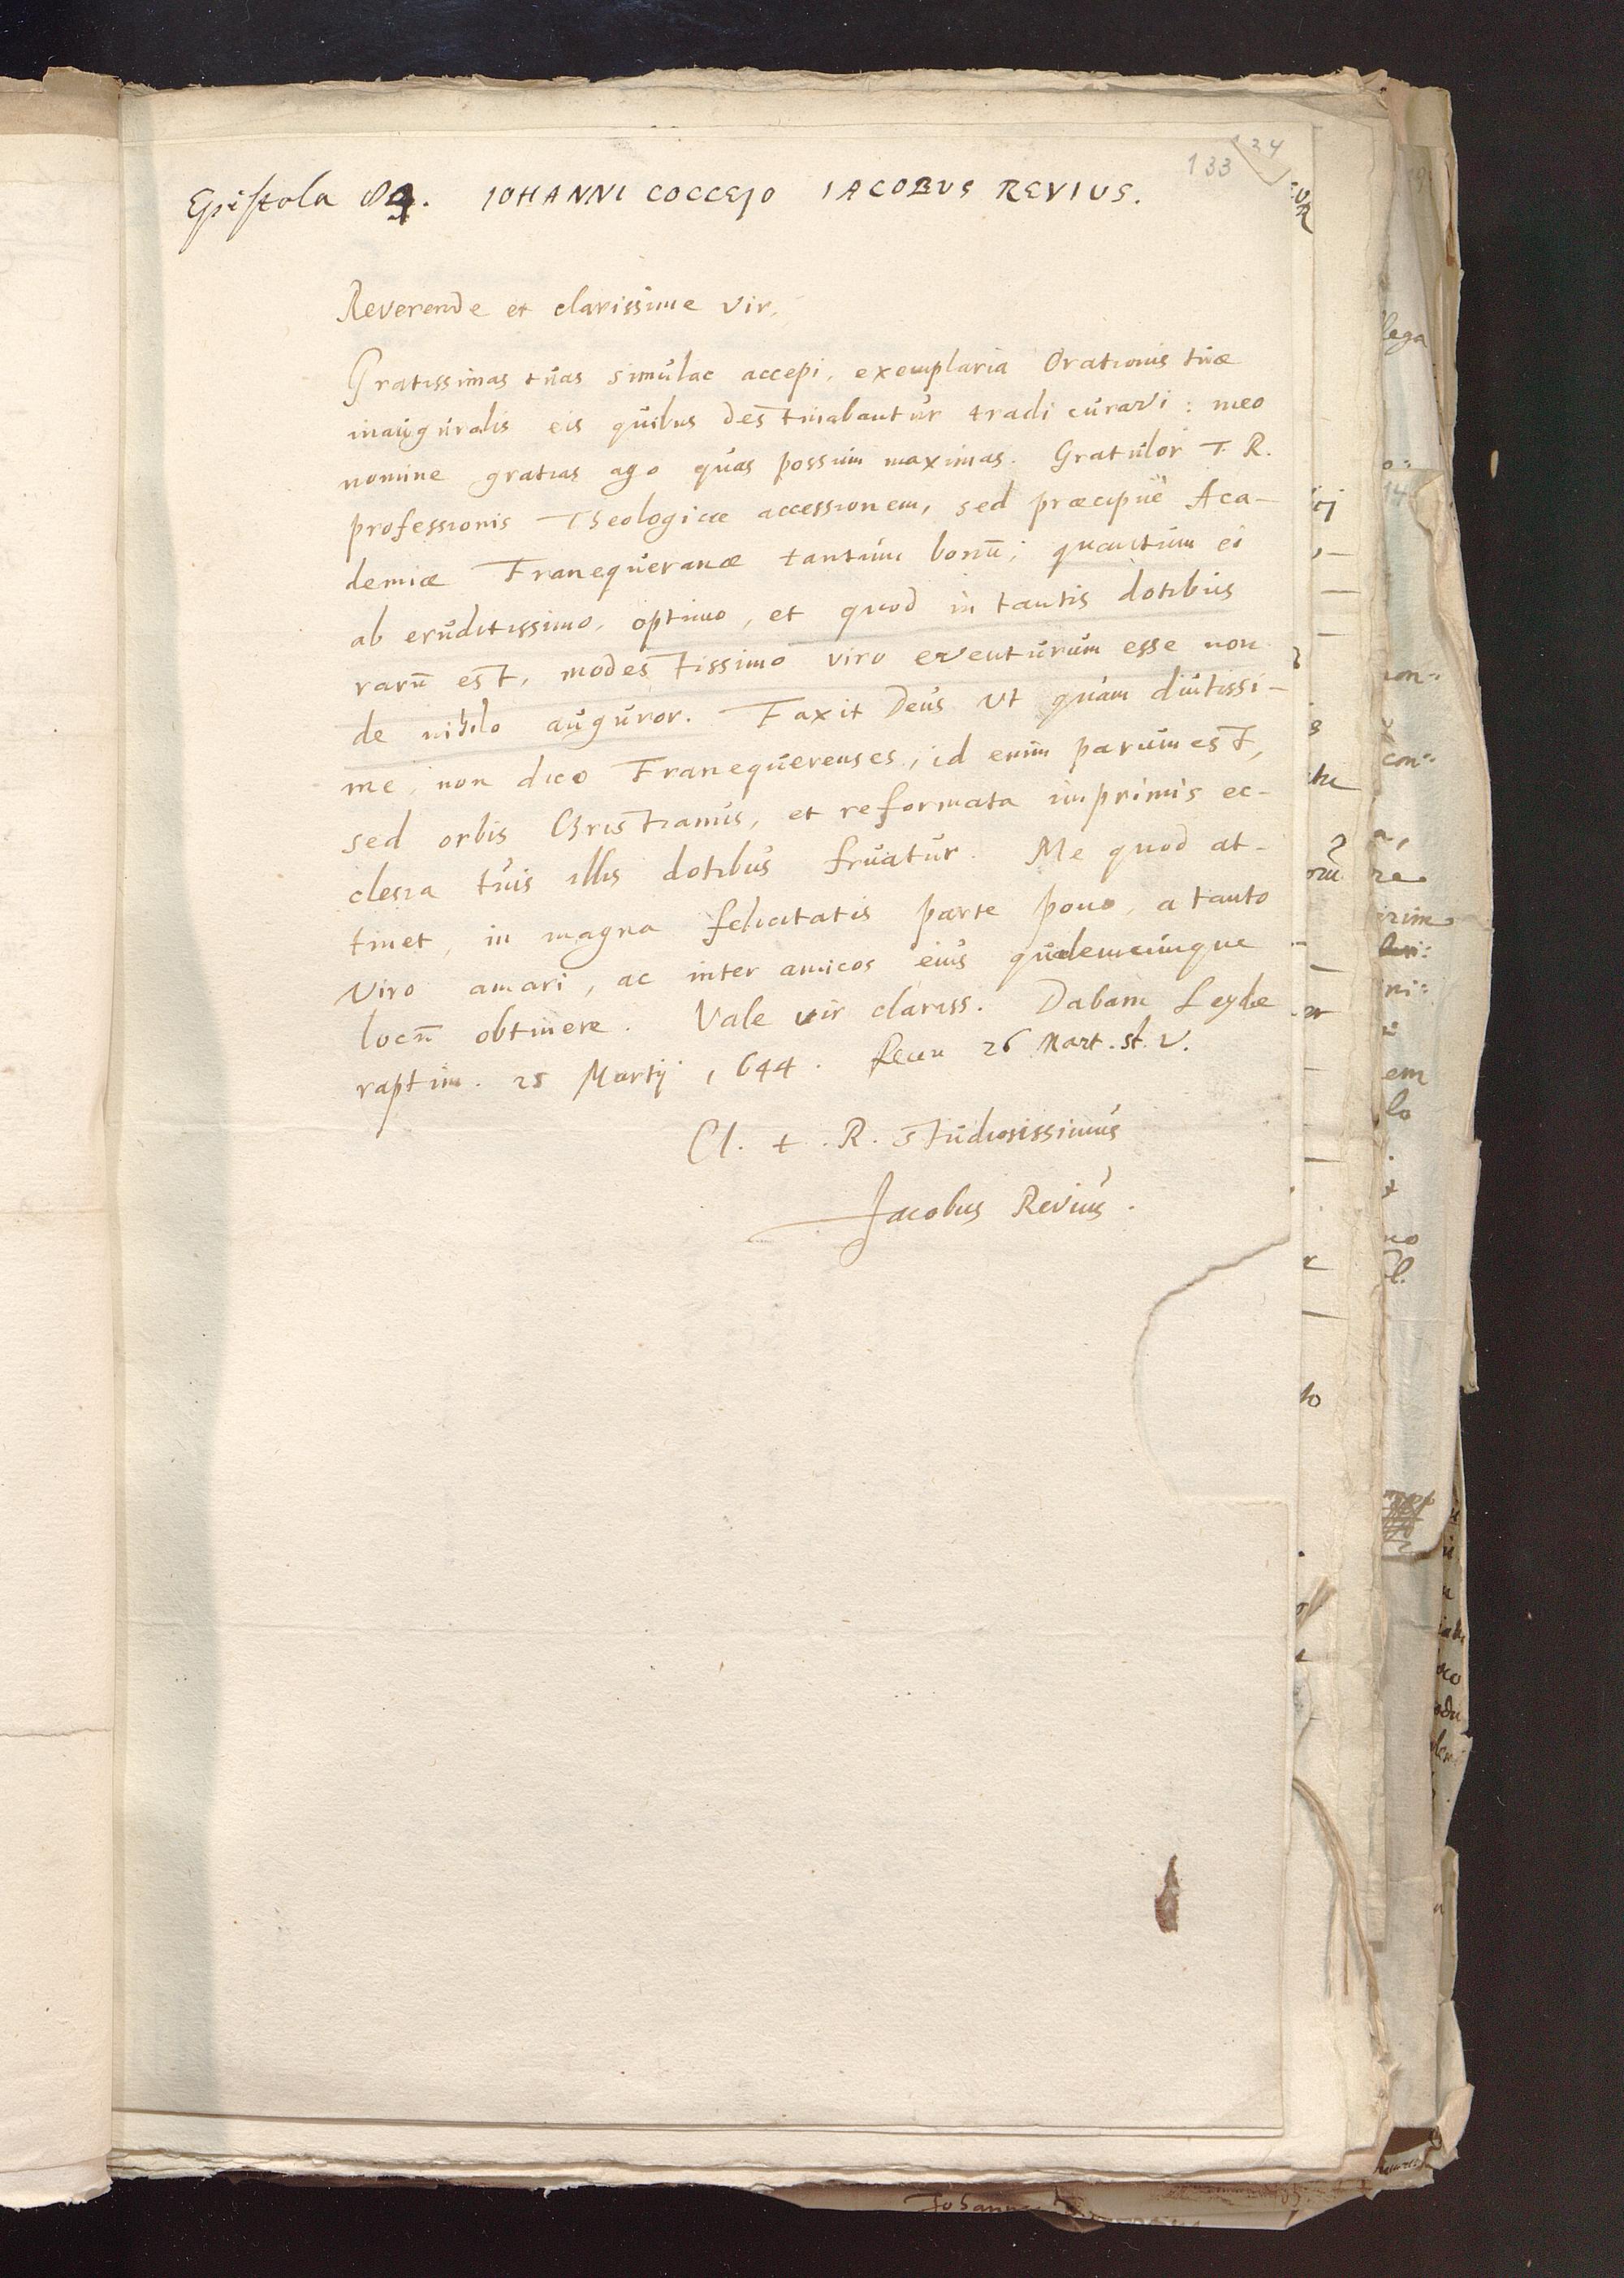 133
Epistola 89. IOHANNI COCCEJO IACOBUS REVIUS.
Reverende et clarissime vir,
Gratissimas tuas simulac accepi, exemplaria Orationis tuæ
inauguralis eis quibus destinabantur tradi curavi: meo
nomine gratias ago quas possum maximas. Gratulor T. R.
professionis Theologicæ accessionem, sed præcipue Aca-
demiæ Franequeranæ tantum bonū; quantum ei
ab eruditissimo, optimo, et quod in tantis dotibus
rarū est, modestissimo viro eventurum esse non
de nihilo auguror. Faxit Deus ut quam diutissi-
me, non dico Franequerenses, id enim parum est,
sed orbis Christianus, et reformata imprimis ec-
clesia tuis illis dotibus fruatur. Me quod at-
tinet, in magna felicitatis parte pono, a tanto
viro amari, ac inter amicos eius qualemcunque
locū obtinere. Vale vir clariss. Dabam Leydæ
raptim. 25 Martij 1644. 26 Mart. st. v.
Cl. t. R. studiosissimus
Jacobus Revius.